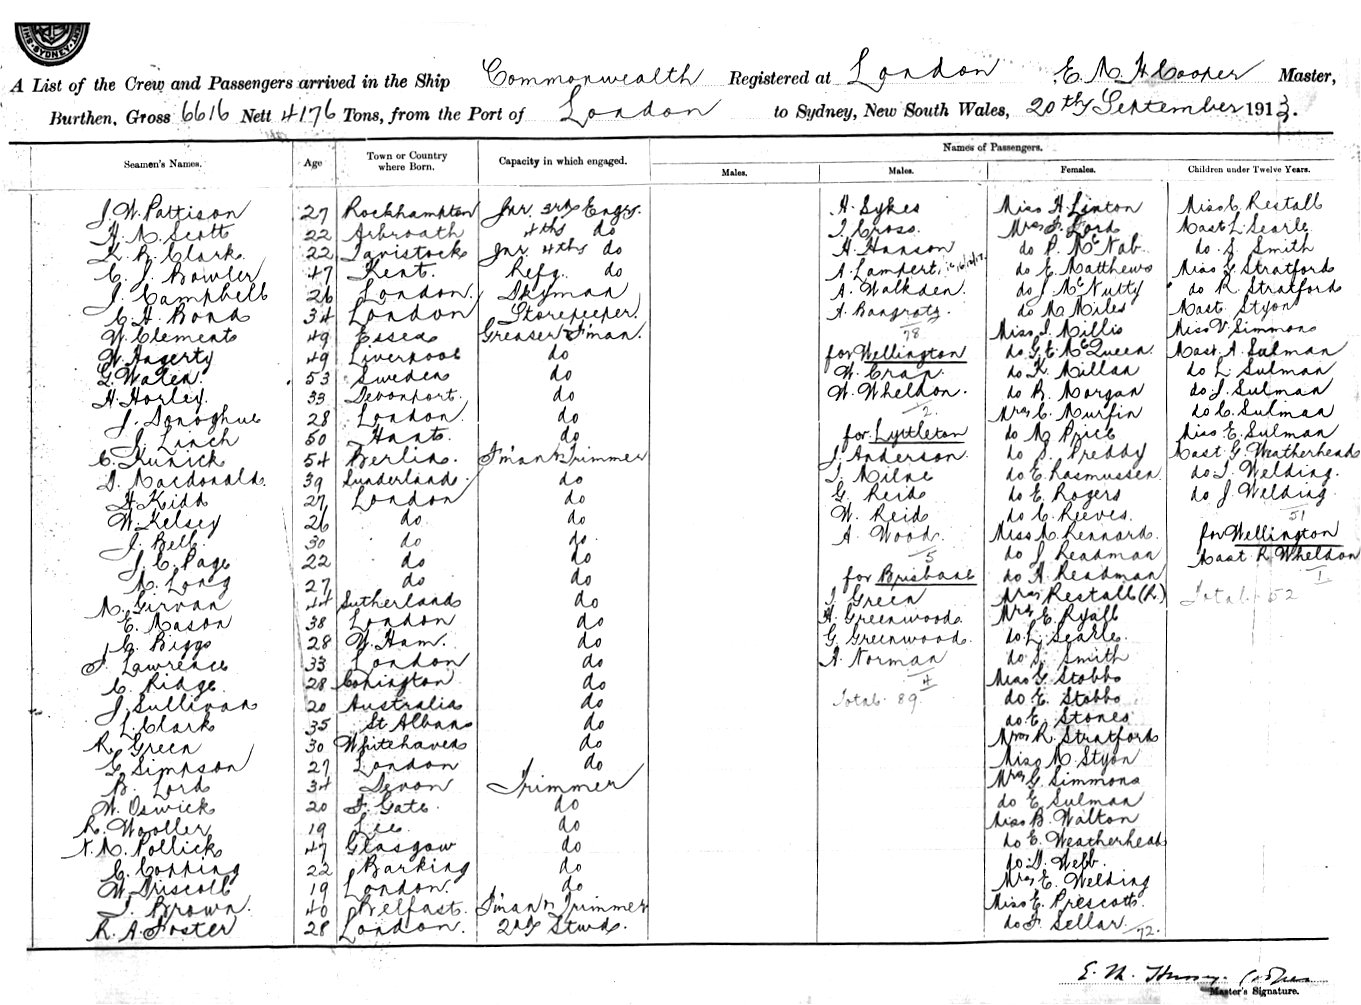 SYDNEY
A List of the Crew and Passengers arrived in the Ship Commonwealth Registered at London E M H Cooper Master,
Burthen, Gross 6616 Nett 4176 Tons, from the Port of London to Sydney, New South Wales, 20th September 1913.
Seamen's Names. Age Town or Country where Born. Capacity in which engaged. Names of Passengers.
Males. Males. Females. Children under Twelve Years.
J. W. Pattison 27 Rockhampton Jnr 3rd Engr. A. Sykes Miss H. Linton Miss C. Restall
H. M. Scott 22 Arbroath 4th do T. Cross Mrs F. Lord Mast L. Searle
K. B. Clark 22 Tavistock Jnr 4th do H. Hanson do P. McNab do J. Smith
C. J. Bowler 47 Kent. Refg. do A. Lampert. do E. Matthews Miss G. Stratford
J. Campbell 26 London. Dkyman A. Walkden. do J McNutty do R. Stratford
C. H. Bond 34 London Storekeeper. A. Bangratz. do M Miles Mast Styon
W. Clements 49 Essex Greaser F'man. 78 Miss J. Millis Miss V. Simmons
W. Hagerty 49 Liverpool do for Wellington do G. E. McQueen. Mast. A. Sulman
G. Walen. 53 Sweden do W. Cran. do K. Millan do L. Sulman
H. Horley. 33 Devonport. do W. Wheldon. do R. Morgan do J. Sulman
J. Donoghue 28 London do 2. Mrs C. Murfin do C. Sulman
J. Linch 50 Hants. do for Lyttleton do M. Price Miss E. Sulman
C. Kunick 54 Berlin. F'man & Trimmer J. Anderson. do S. Preddy Mast G. Weatherhead
D. Macdonald. 39 Sunderland. do T. Milne do E. Rasmussen do T. Welding.
H. Kidd 27 London do G. Reid do E. Rogers do J. Welding
W. Kelsey 26 do do W. Reid do C. Reeves. 51
J. Bell. 30 do do. A. Wood. Miss M. Rennard. for Wellington
J. C. Page 22 do do 5 do J. Readman Mast R Wheldon
M. Long 27 do do for Brisbane do A. Readman 1
M. Girvan 44 Sutherland do J. Green Mrs Restall (R.) Total 52
E. Mason 38 London do H. Greenwood. Mrs E. Ryall
G. Biggs 28 W. Ham. do G. Greenwood. do L. Searle.
F. Lawrence 33 London do A. Norman do S. Smith
C. Ridge. 28 do 4 Miss G. Stobbs
J. Sullivan 20 Australia do Total 89. do E. Stobbs
L. Clark 35 St Albans do do E. Stones
R. Green 30 Whitehaven do Mrs R. Stratford
G. Simpson 27 London do Miss M. Styon
B. Lord 34 Devon Trimmer Mrs G. Simmons
W. Oswick 20 F. Gate. do do E. Sulman
R. Wooller 19 Lee do Miss B. Walton
N. M. Pollick 47 Glasgow do do E. Weatherhead
C. Copping 22 Barking do do D. Webb.
W. Driscoll 19 London. do Mrs E. Welding
T. Brown. 40 Belfast. F'man & Trimmer Miss E. Prescott.
R. A. Foster 28 London. 2nd Stwd. do F. Sellar. 72.
Master's Signature.